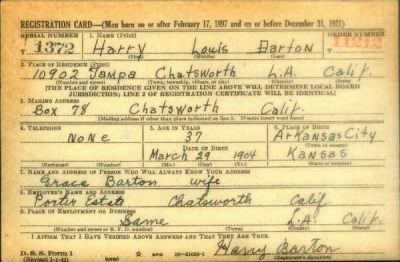 REGISTRATION CARD—(Men born on or after February 17, 1897 and on or before December 31, 1921)
SERIAL NUMBER 1. NAME (Print) ORDER NUMBER
T 1372 Harry Louis Barton
(First) (Middle) (Last)
2. PLACE OF RESIDENCE (Print)
10902 Tampa Chatsworth L.A. Calif.
(Number and street) (Town, township, village, or city) (County) (State)
[THE PLACE OF RESIDENCE GIVEN ON THE LINE ABOVE WILL DETERMINE LOCAL BOARD
JURISDICTION; LINE 2 OF REGISTRATION CERTIFICATE WILL BE IDENTICAL]
3. MAILING ADDRESS
Box 78 Chatsworth Calif.
[Mailing address if other than place indicated on line 2. If same insert word same]
4. TELEPHONE 5. AGE IN YEARS 6. PLACE OF BIRTH
None 37 Arkansas City
DATE OF BIRTH
March 29 1904 Kansas
(Exchange) (Number) (Mo.) (Day) (Yr.) (State or country)
7. NAME AND ADDRESS OF PERSON WHO WILL ALWAYS KNOW YOUR ADDRESS
Grace Barton wife
8. EMPLOYER'S NAME AND ADDRESS
Porter Estate Chatsworth Calif.
9. PLACE OF EMPLOYMENT OR BUSINESS
Same L.A. Calif.
(Number and street or R. F. D. number) (Town) (County) (State)
I AFFIRM THAT I HAVE VERIFIED ABOVE ANSWERS AND THAT THEY ARE TRUE.
D. S. S. Form 1
Harry Barton